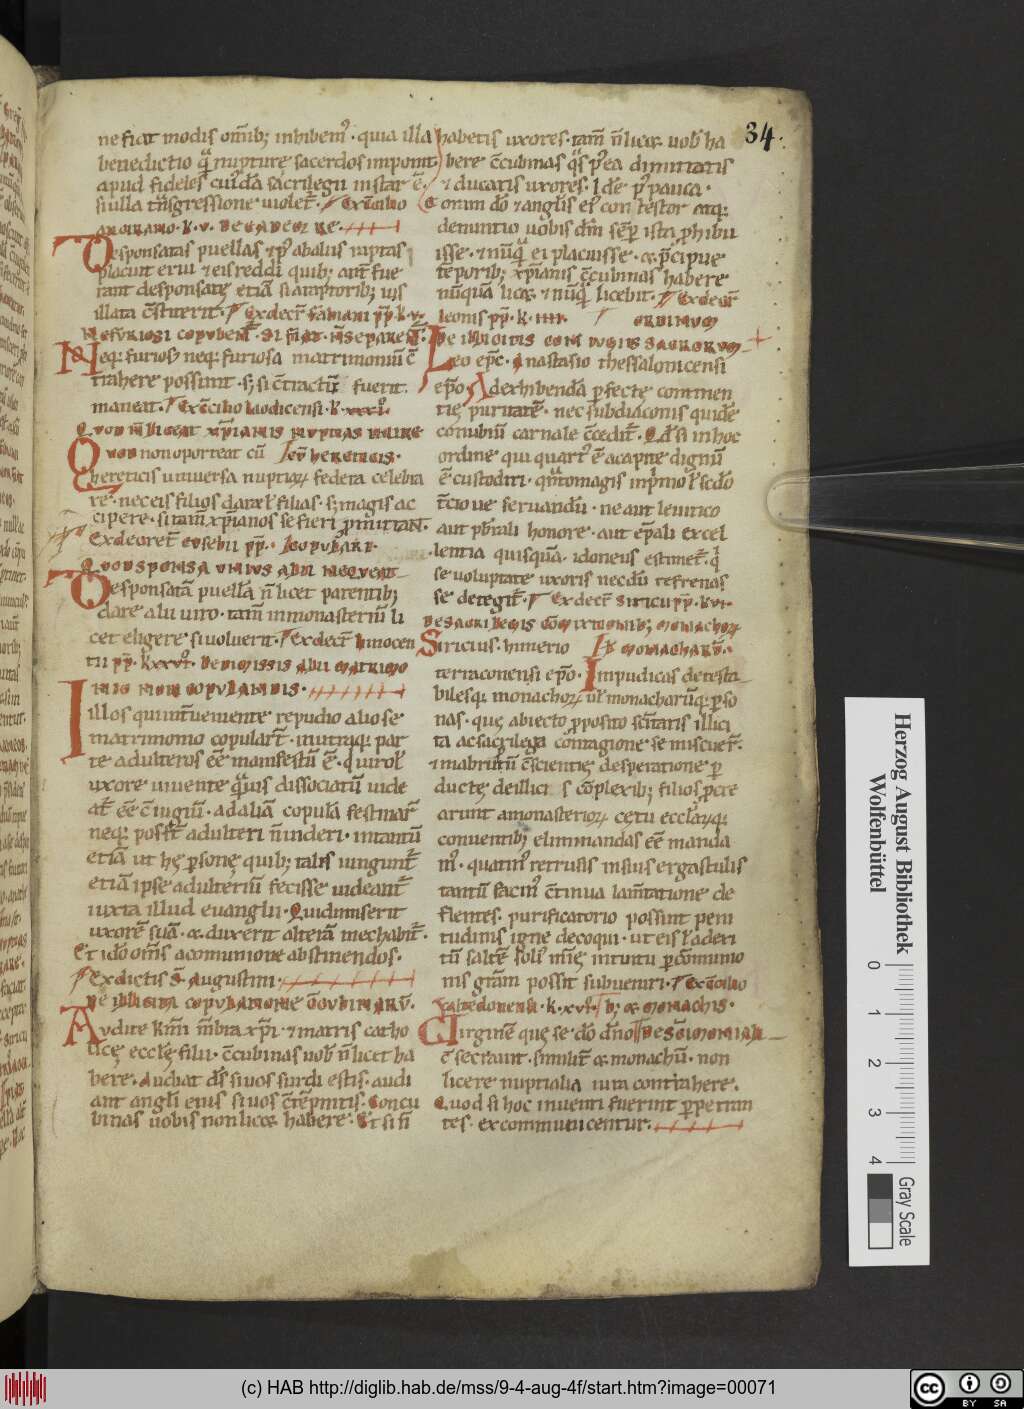 34
ne fiat modis om̄ib; inhibemꝰ · quia illa
benedictio quā nupture sacerdos imponit
apud fideles cuidā sacrilegii instar ē
si ulla t̄nsgressione violet̄ · Ex c̄cilio
esponsatas puellas · & p̄ ab aliis raptas
placuit erui & eis reddi quib; ant̄ fue
rant desponsatę etiā si a raptorib; uis
illata c̄stiterit · Ex decr̄ fabiani pp̄ · k · v ·
eq; furiosꝰ neq; furiosa matrimoniū c̄
trahere possunt · s; si c̄tractū fuerit
maneat · Ex c̄cilio laodicensi · k · xxxi ·
uod non oporteat cū
hereticis universa nuptiarꝝ federa celebra
re · nec eis filios dare ł filias · s; magis ac
cipere · si tam̄ xp̄ianos se fieri promittant ·
Ex decret̄ eusebii pp̄ ·
esponsatā puellā n̄ licet parentib;
dare alii viro · tam̄ in monasteriū li
cet eligere si voluerit · Ex decr̄ Innocen
tii pp̄ ·
illos qui int̄veniente repudio alio se
matrimonio copulart̄ · in utraq; par
te adulteros eē manifestū ē · Qui vel
uxore vivente quāvis dissociatū vide
at̄ eē c̄iugiū · ad aliā copulā festinar̄
neq; poss̄t adulteri n̄ videri · in tantū
etiā ut hę p̄sonę quib; talis iungunt̄
etiā ipse adulteriū fecisse videant̄
iuxta illud evanglii · Qui dimiserit
uxorē suā · & duxerit alterā mechabit̄ ·
Et idō om̄s a comunione abstinendos ·
Ex dictis S Augustini ·
De illicita copulatione c̄cubinarū ·
Audite km̄i m̄bra xp̄i · & matris catho
licę ecclę filii · c̄cubinas vob n̄ licet ha
bere · Audiat ds̄ si vos surdi estis · audi
ant angli eius si vos c̄tēpnitis · Concu
binas vobis non licet habere · Et si n̄
habetis uxores · tam̄ n̄ licet vob ha
bere c̄cubinas qs̄ p̄ea dimittatis
& ducatis uxores · ł de
Coram dō & anglis eiꝰ contestor atq;
denuntio vobis dm̄ sēp ista prohibu
isse · & nūquā ei placuisse · & p̄cipue
tēporib; xp̄ianis c̄cubinas habere
nūquā licet · & nūquā licebit · Ex decr̄
leonis pp̄ · k · iiii ·
Leo epc̄ · Anastasio thessalonicensi
epo · Ad exhibendā perfectę continen
tię puritatē · nec subdiaconis quidē
conubiū carnale c̄cedit̄ · Qd̄ si in hoc
ordine qui quartꝰ ē a capite dignū
ē custodiri · quāto magis in primo ł sedo
t̄cio ve servandū · ne aut levitico
aut pb̄rali honore · aut ep̄ali excel
lentia quisquā idoneus estimet̄ · qui
se voluptate uxoris necdū refrenas
se detegit̄ · Ex decr̄ Siricii pp̄ · k vi ·
Siricius · himerio
terraconensi epo · Impudicas detesta
bilesq; monachorꝝ vł monacharūq; p̄so
nas · quę abiecto p̄posito sc̄itatis illici
ta ac sacrilega contagione se miscuer̄ ·
& in abruptū c̄scientię desperatione p
ductę de illicitis cōplexib; filios p̄cre
arunt a monasteriorꝝ cętu ecclarūq;
conventib; eliminandas eē manda
mꝰ · quatinꝰ retrusis in suis ergastulis
tantū facinꝰ c̄tinua lam̄tatione de
flentes · purificatorio possint peni
tudinis igne decoqui · ut eis
tū saltē
nis gratiam possit subveniri · Ex c̄cilio
Virginē quę se dō dn̄o
c̄secravit · similit̄ & monachū · non
licere nuptialia iura contrahere ·
Quod si hoc inventi fuerint perpetran
tes · excommunicentur ·
Herzog August Bibliothek
Wolfenbüttel
0 1 2 3 4
Gray Scale
(c) HAB http://diglib.hab.de/mss/9-4-aug-4f/start.htm?image=00071
cc BY SA